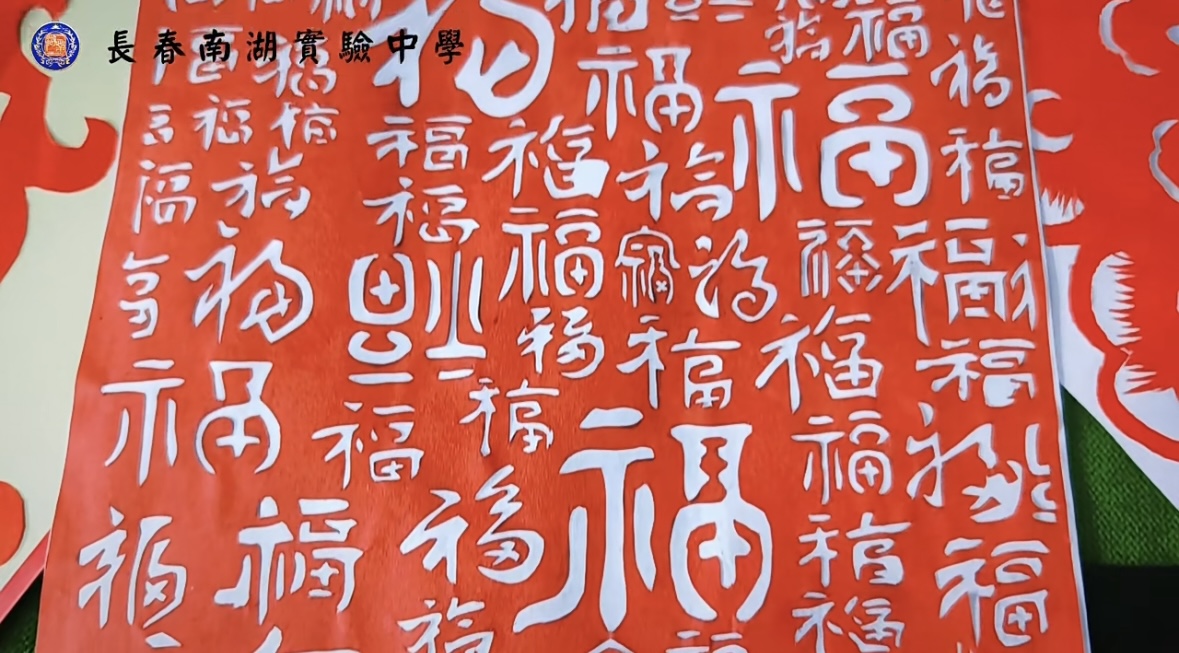 長春南湖實驗中學
福 福 福 福
福 福 福 福 福
福 福 福 福
福 福 福 福 福
福 福 福 福 福
福 福 福 福
福 福 福 福 福
福 福 福 福
福 福 福 福 福
福 福